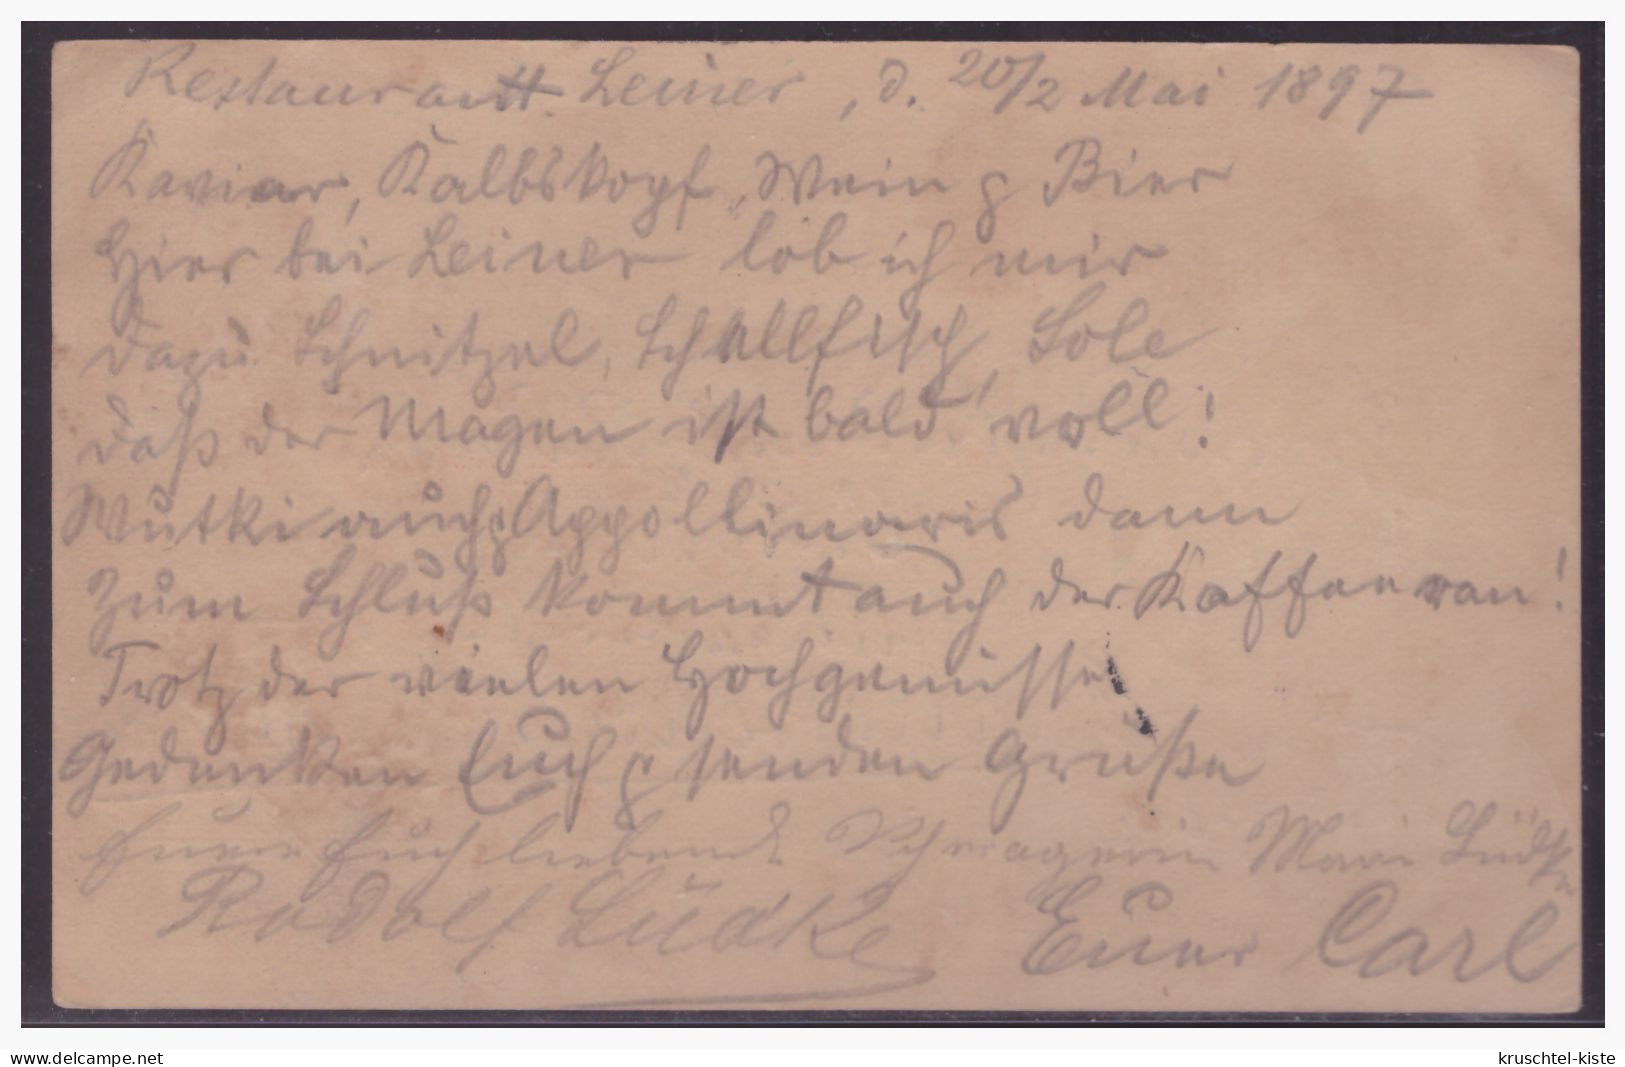 Restaurantt Leiner, d. 20/2 Mai 1897
Kaviar, Kalbskopf, Wein & Bier
Hier bei Leiner lob ich mir
dazu Schnitzel, Schellfisch, Sole
daß der Magen ist bald voll!
Wutki auch & Appollinaris dann
Zum Schluß kommt auch der Kaffee ran!
Trotz der vielen Hochgenüsse
Gedenken Euch & senden Grüße
Euch liebende Schwägerin Marie Lüdke
Rudolf Lüdke Euer Carl
www.delcampe.net
kruschtel-kiste